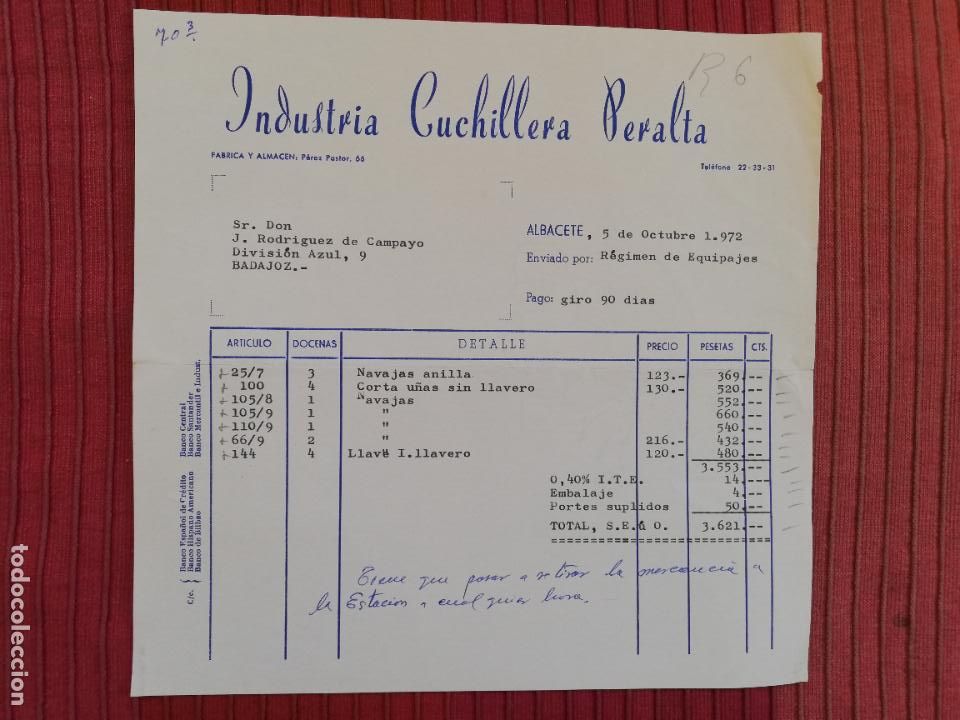 70 3
R 6
Industria Cuchillera Peralta
FABRICA Y ALMACEN: Pérez Pastor, 66
Teléfono 22-23-31
Sr. Don
J. Rodriguez de Campayo
División Azul, 9
BADAJOZ.-
ALBACETE, 5 de Octubre 1.972
Enviado por: Régimen de Equipajes
Pago: giro 90 dias
ARTICULO DOCENAS DETALLE PRECIO PESETAS CTS.
25/7 3 Navajas anilla 123.- 369.--
100 4 Corta uñas sin llavero 130.- 520.--
105/8 1 Navajas 552.--
105/9 1 " 660.--
110/9 1 " 540.--
66/9 2 " 216.- 432.--
144 4 Llave I.llavero 120.- 480.--
3.553.--
0,40% I.T.E. 14.--
Embalaje 4.--
Portes suplidos 50.--
TOTAL, S.E.& O. 3.621.--
Tiene que pasar a retirar la mercancia a
la Estación a cualquier hora.
C/c. Banco Español de Crédito Banco Central
Banco Hispano Americano Banco Santander
Banco de Bilbao Banco Mercantil e Indust.
todocoleccion